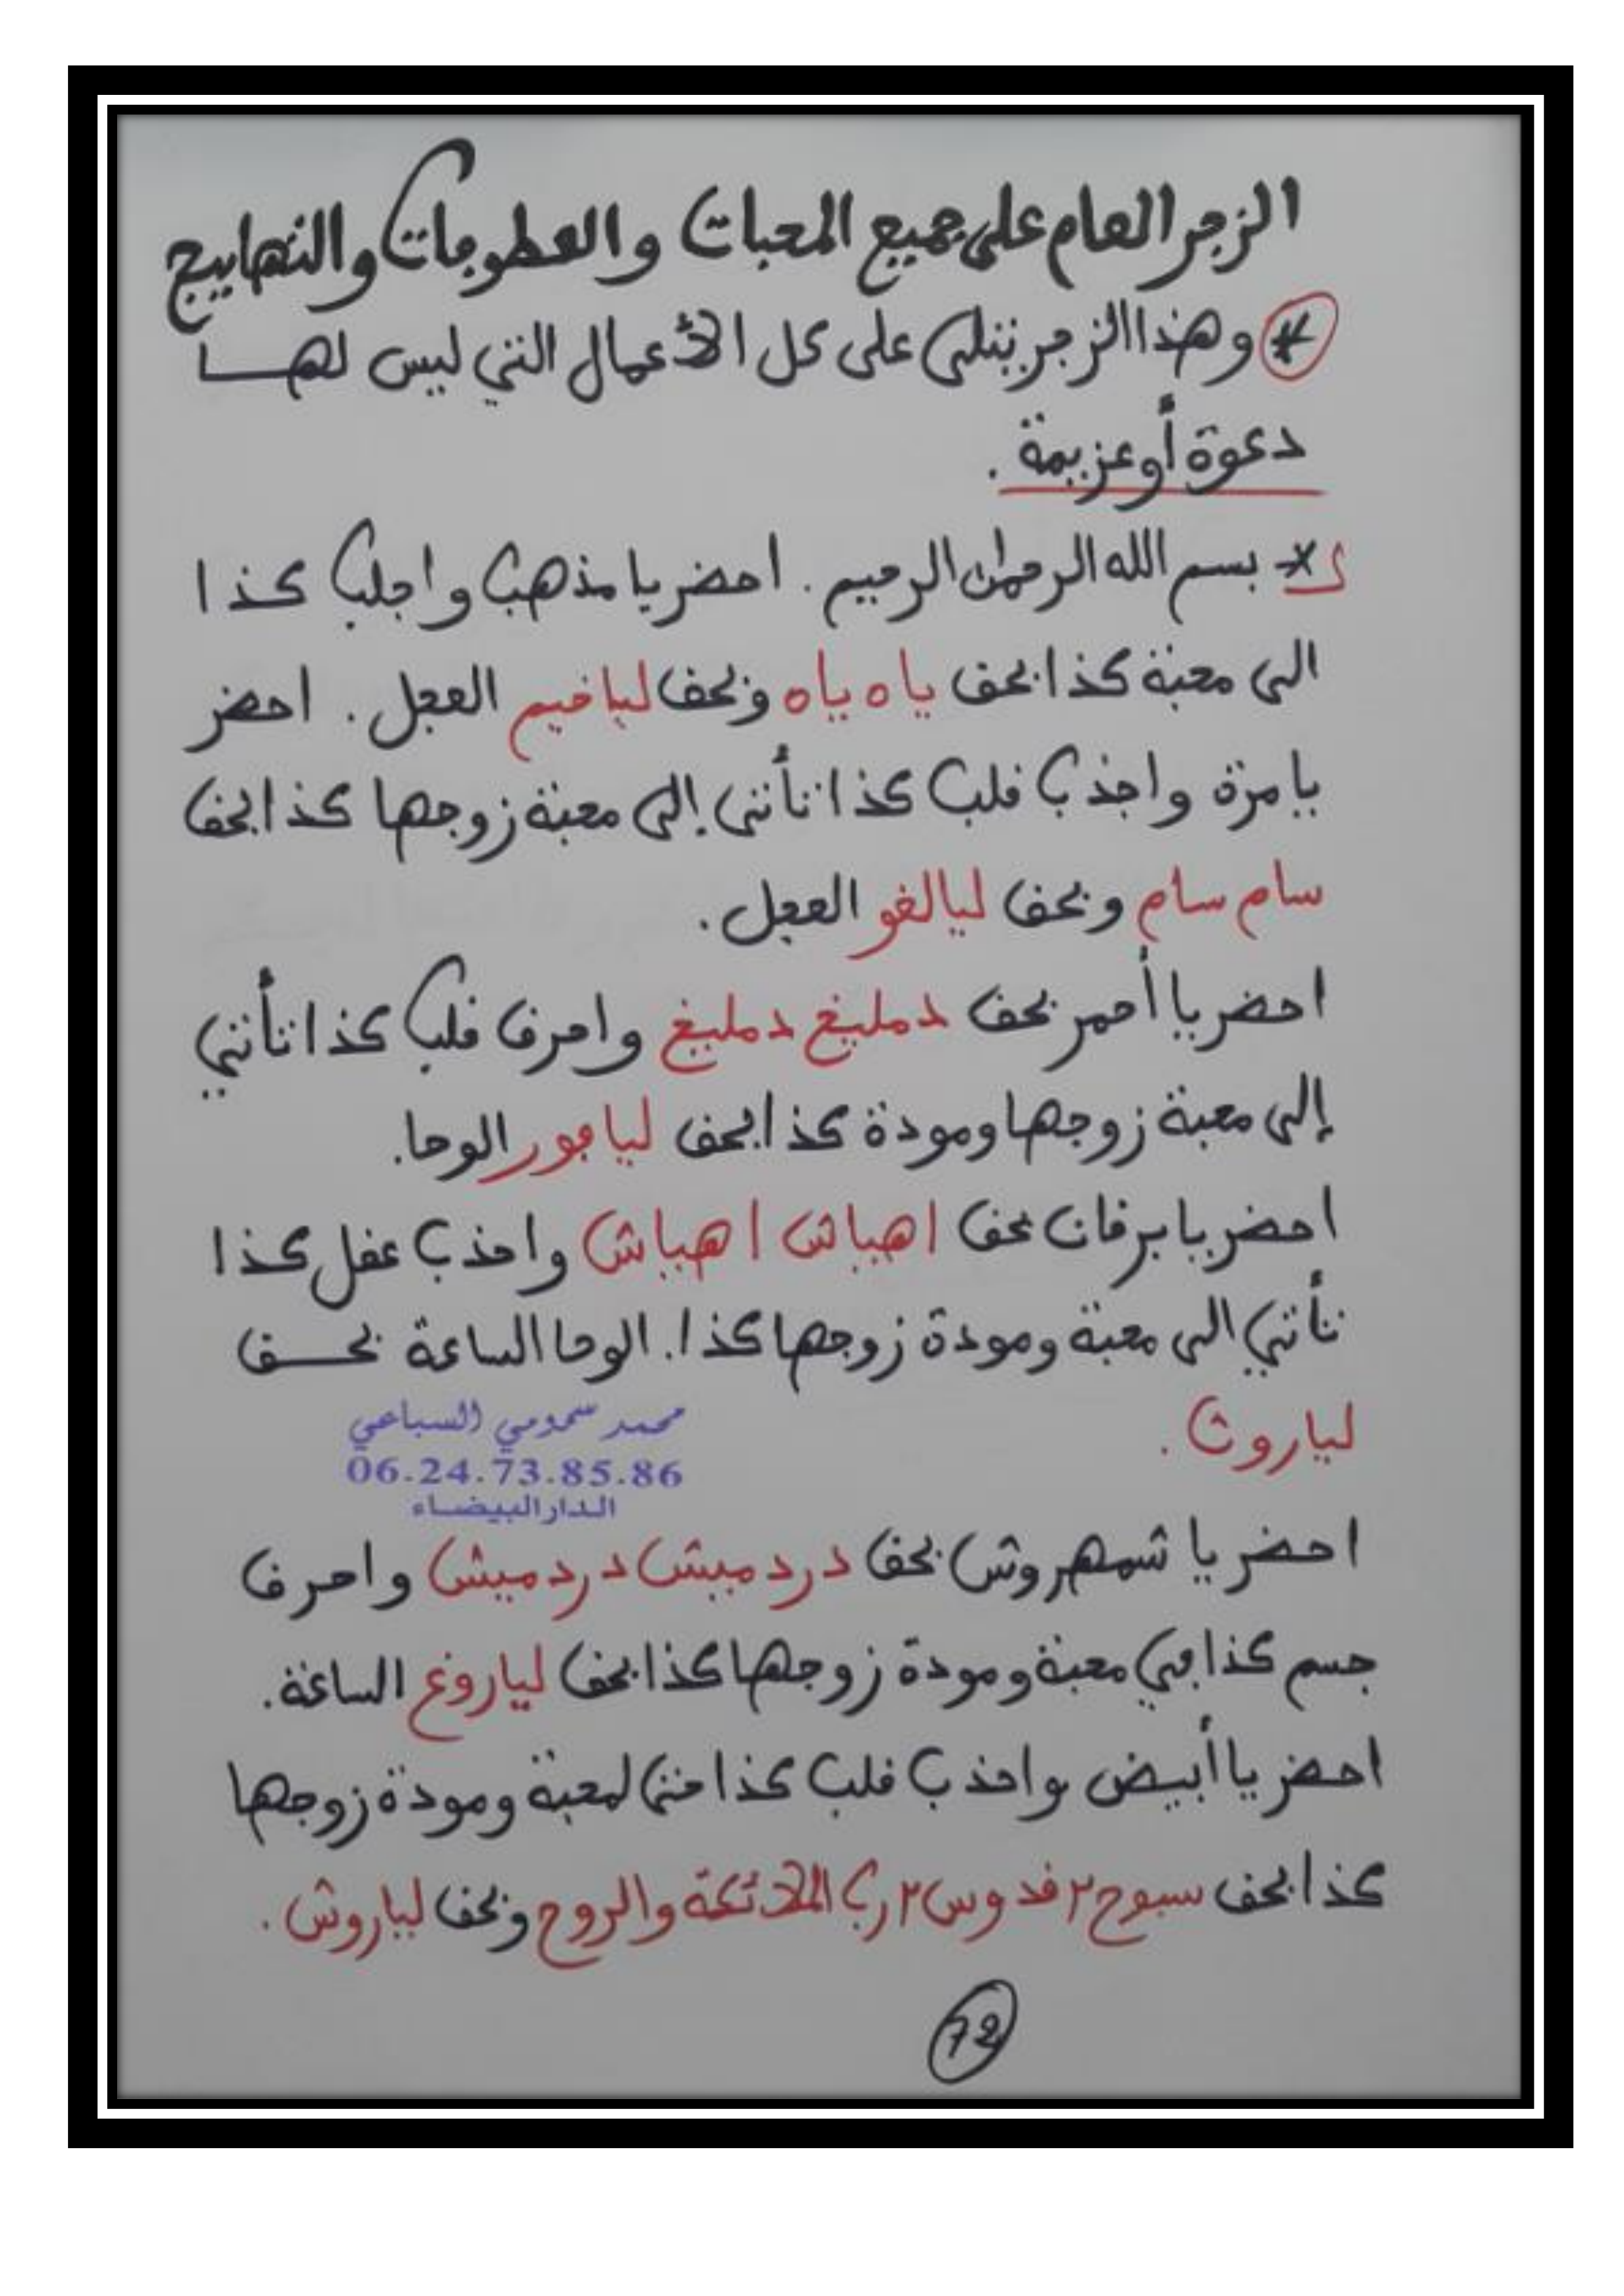 الزجر العام على جميع المحبات والعطوفات والتهاييج
* وهذا الزجر يتلى على كل الأعمال التي ليس لهـــا
دعوة أو عزيمة .
* بسم الله الرحمان الرحيم . احضر يا مذهب واجلب كذا
الى محبة كذا بحق ياه ياه وبحق لياخيم العجل . احضر
يا مرة واجذب قلب كذا تأتي إلى محبة زوجها كذا بحق
سام سام وبحق ليالغو العجل .
احضر يا أحمر بحق دمليخ دمليخ واحرق قلب كذا تأتي
إلى محبة زوجها ومودة كذا بحق ليافور الوحا.
احضر يا برقان بحق اهياش اهياش واجذب عقل كذا
تأتي الى محبة ومودة زوجها كذا. الوحا الساعة بحـــق
لياروث .
محمد سمومي السباعي
06.24.73.85.86
الدار البيضاء
احضر يا شمهروش بحق دردميش دردميش واحرق
جسم كذا في محبة ومودة زوجها كذا بحق لياروغ الساعة.
احضر يا أبيض واجذب قلب كذا لمحبة ومودة زوجها
كذا بحق سبوح ٢ قدوس ٢ رب الملائكة والروح وبحق لياروش .
72